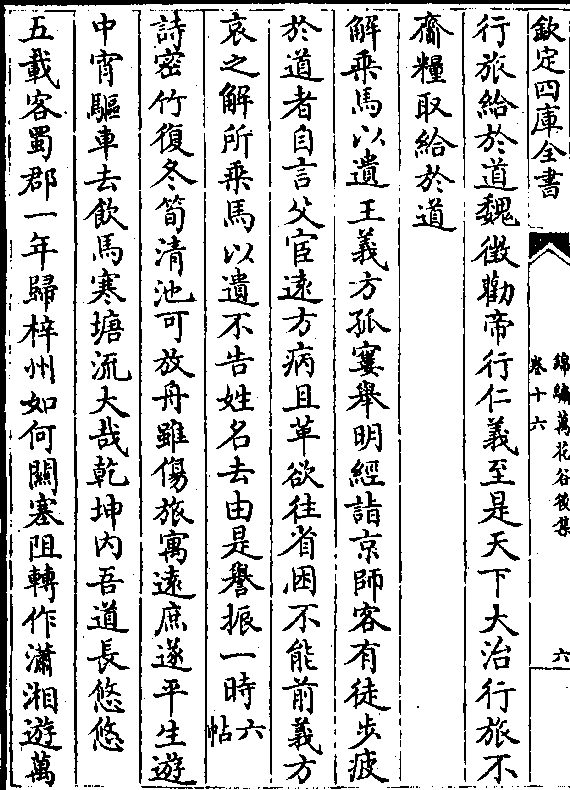 欽定四庫全書
錦繡萬花谷後集
卷十六
六
行旅給於道魏徴勸帝行仁義至是天下大治行旅不
齎糧取給於道
解乘馬以遺王義方孤窶舉明經詣京師客有徒步疲
於道者自言父宦逺方病且革欲往省困不能前義方
哀之解所乘馬以遺不告姓名去由是譽振一時六帖
詩密竹復冬筍清池可放舟雖傷旅寓逺庶遂平生遊
中宵驅車去飲馬寒塘流大哉乾坤内吾道長悠悠
五載客蜀郡一年歸梓州如何關塞阻轉作瀟湘遊萬